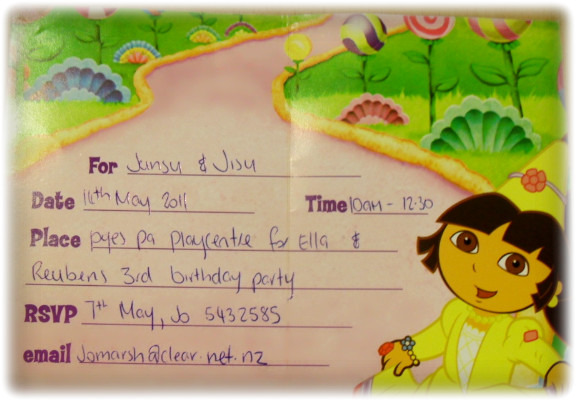 For Junsu & Jisu
Date 14th May 2011 Time 10am - 12.30
Place pyes pa playcentre for Ella &
Reubens 3rd birthday party
RSVP 7th May, Jo 5432585
email Jomarsh@clear.net.nz